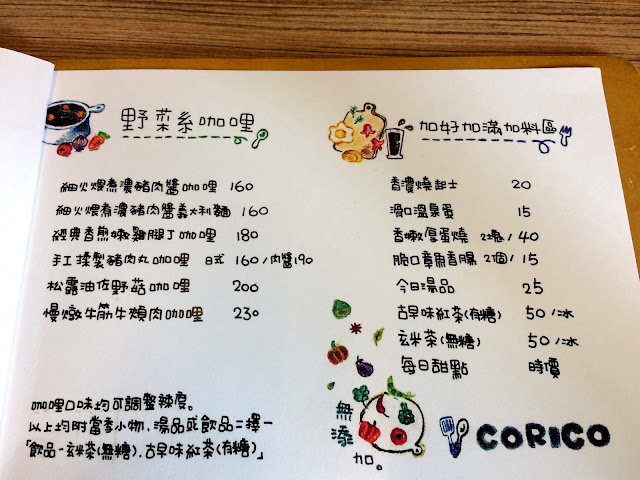 野菜系咖哩
細火煨煮濃豬肉醬咖哩 160
細火煨煮濃豬肉醬義大利麵 160
經典香煎嫩雞腿丁咖哩 180
手工揉製豬肉丸咖哩 日式 160/肉醬190
松露油佐野菇咖哩 200
慢燉牛筋牛頰肉咖哩 230
咖哩口味均可調整辣度。
以上均附當季小物、湯品或飲品二擇一
「飲品-玄米茶(無糖)、古早味紅茶(有糖)」
加好加滿加料區
香濃燒起士 20
滑口溫泉蛋 15
香嫩厚蛋燒 2塊/40
脆口章魚香腸 2個/15
今日湯品 25
古早味紅茶(有糖) 50/冰
玄米茶(無糖) 50/冰
每日甜點 時價
無添加。
CORICO